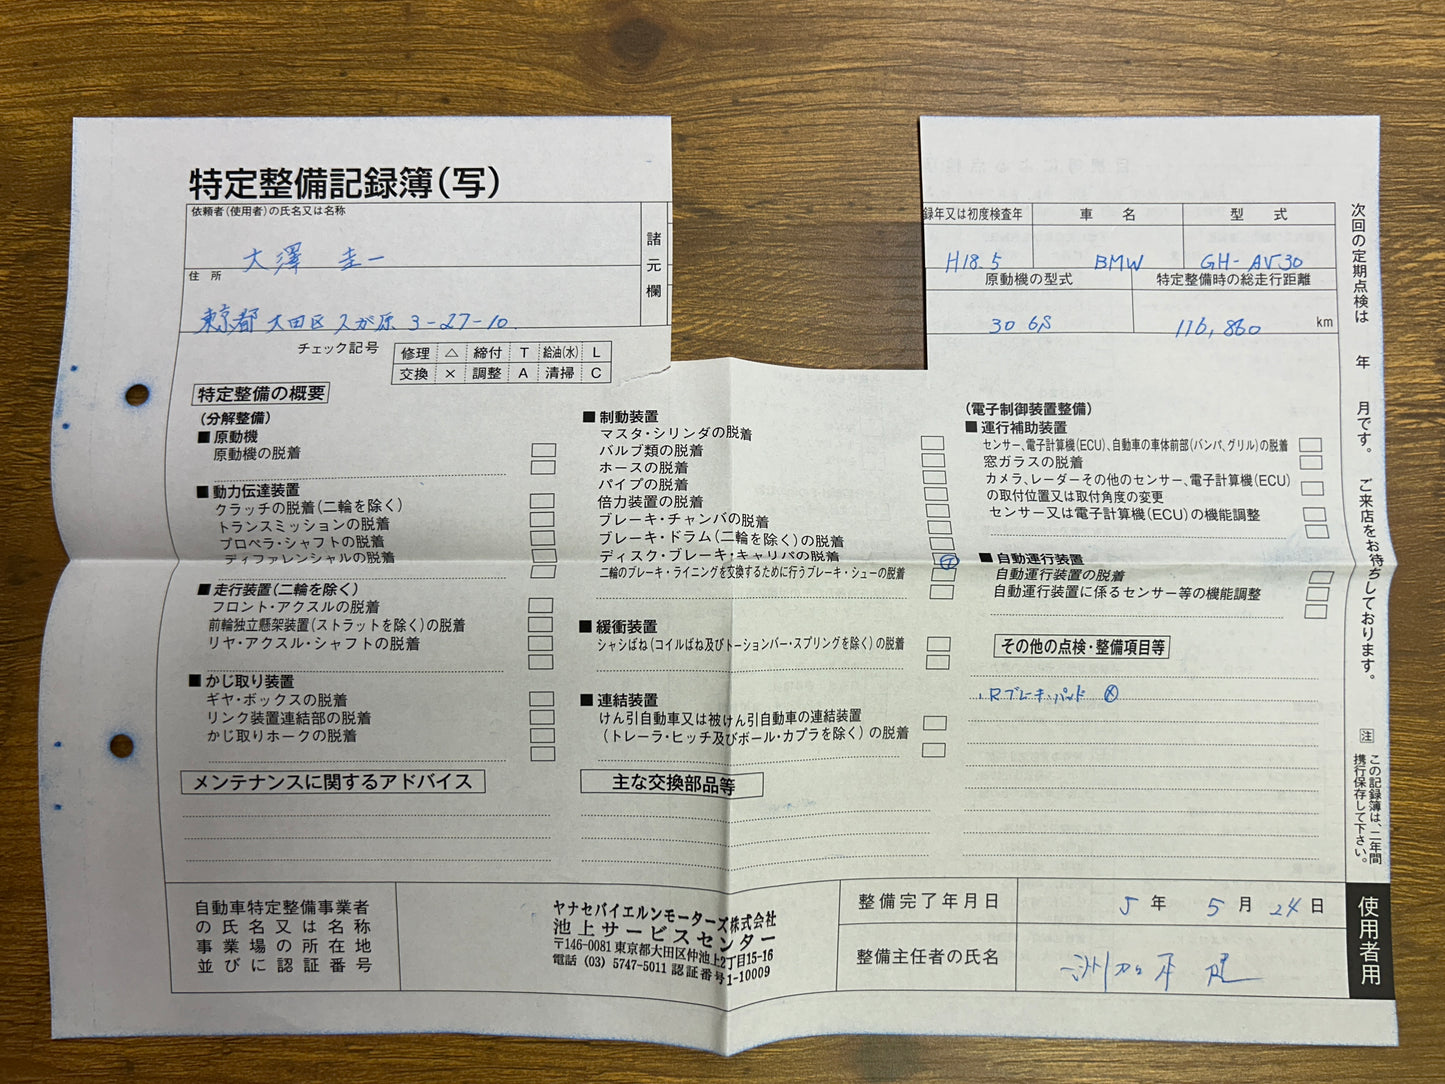 特定整備記録簿(写)
依頼者(使用者)の氏名又は名称
大澤 圭一
住所
東京都大田区久が原3-27-10
諸元欄
録年又は初度検査年
車名
型式
H18.5
BMW
GH-AV30
原動機の型式
特定整備時の総走行距離
30 6S
116,860 km
チェック記号
修理 △ 締付 T 給油(水) L
交換 × 調整 A 清掃 C
特定整備の概要
(分解整備)
■原動機
原動機の脱着
■動力伝達装置
クラッチの脱着(二輪を除く)
トランスミッションの脱着
プロペラ・シャフトの脱着
ディファレンシャルの脱着
■走行装置(二輪を除く)
フロント・アクスルの脱着
前輪独立懸架装置(ストラットを除く)の脱着
リヤ・アクスル・シャフトの脱着
■かじ取り装置
ギヤ・ボックスの脱着
リンク装置連結部の脱着
かじ取りホークの脱着
■制動装置
マスタ・シリンダの脱着
バルブ類の脱着
ホースの脱着
パイプの脱着
倍力装置の脱着
ブレーキ・チャンバの脱着
ブレーキ・ドラム(二輪を除く)の脱着
ディスク・ブレーキ・キャリパの脱着
Ⓣ
二輪のブレーキ・ライニングを交換するために行うブレーキ・シューの脱着
■緩衝装置
シャシばね(コイルばね及びトーションバー・スプリングを除く)の脱着
■連結装置
けん引自動車又は被けん引自動車の連結装置
(トレーラ・ヒッチ及びボール・カプラを除く)の脱着
(電子制御装置整備)
■運行補助装置
センサー、電子計算機(ECU)、自動車の車体前部(バンパ、グリル)の脱着
窓ガラスの脱着
カメラ、レーダーその他のセンサー、電子計算機(ECU)
の取付位置又は取付角度の変更
センサー又は電子計算機(ECU)の機能調整
■自動運行装置
自動運行装置の脱着
自動運行装置に係るセンサー等の機能調整
その他の点検・整備項目等
・Rブレーキパッド ⓧ
メンテナンスに関するアドバイス
主な交換部品等
自動車特定整備事業者
の氏名又は名称
事業場の所在地
並びに認証番号
ヤナセバイエルンモーターズ株式会社
池上サービスセンター
〒146-0081 東京都大田区仲池上2丁目15-16
電話 (03) 5747-5011 認証番号 1-10009
整備完了年月日
5年 5月 24日
整備主任者の氏名
次回の定期点検は 年 月です。 ご来店をお待ちしております。
注 この記録簿は、二年間
携行保存して下さい。
使用者用